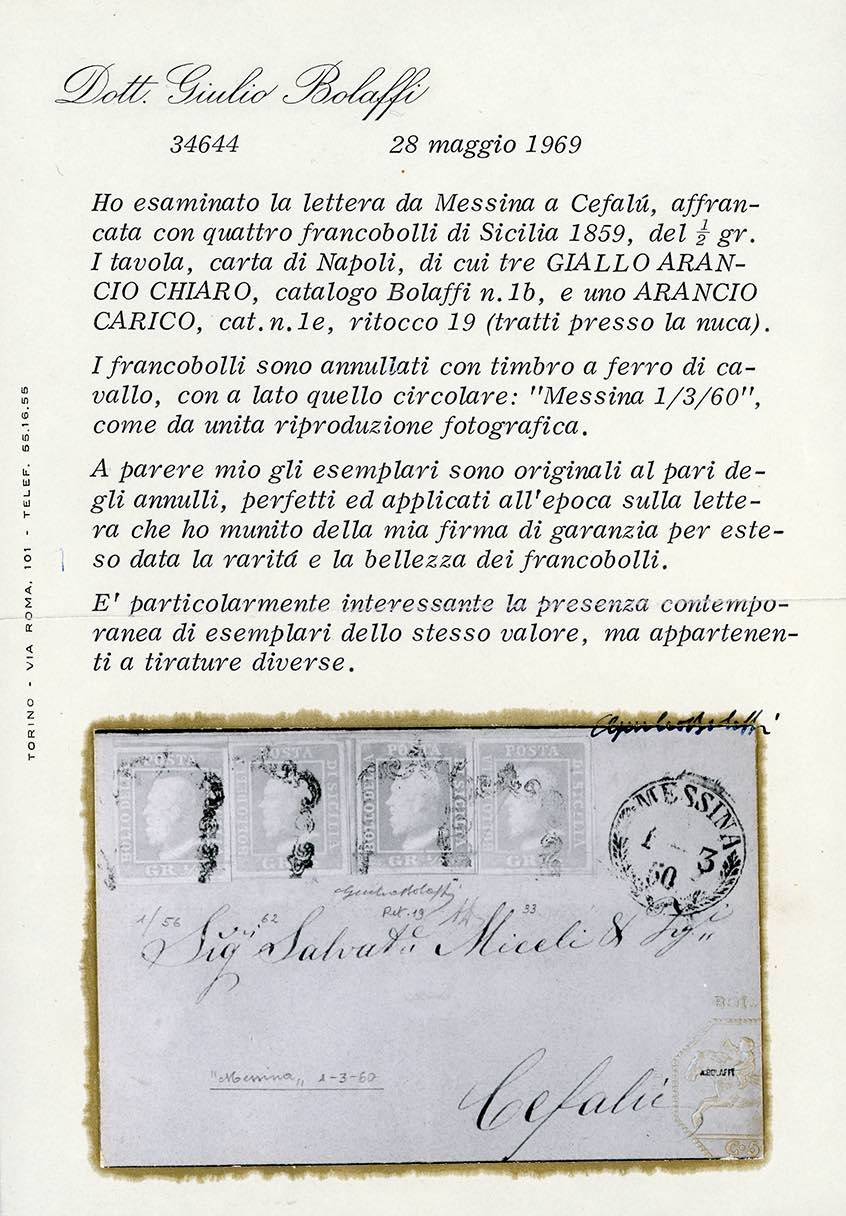 Dott. Giulio Bolaffi
34644 28 maggio 1969
Ho esaminato la lettera da Messina a Cefalú, affran-
cata con quattro francobolli di Sicilia 1859, del ½ gr.
I tavola, carta di Napoli, di cui tre GIALLO ARAN-
CIO CHIARO, catalogo Bolaffi n. 1b, e uno ARANCIO
CARICO, cat. n. 1e, ritocco 19 (tratti presso la nuca).
I francobolli sono annullati con timbro a ferro di ca-
vallo, con a lato quello circolare: "Messina 1/3/60",
come da unita riproduzione fotografica.
A parere mio gli esemplari sono originali al pari de-
gli annulli, perfetti ed applicati all'epoca sulla lette-
ra che ho munito della mia firma di garanzia per este-
so data la raritá e la bellezza dei francobolli.
E' particolarmente interessante la presenza contempo-
ranea di esemplari dello stesso valore, ma appartenen-
ti a tirature diverse.
TORINO - VIA ROMA, 101 - TELEF. 55.16.55
Giulio Bolaffi
BOLLO DELLA POSTA DI SICILIA GR. ½
BOLLO DELLA POSTA DI SICILIA GR. ½
BOLLO DELLA POSTA DI SICILIA GR. ½
BOLLO DELLA POSTA DI SICILIA GR. ½
MESSINA
1 3
60
Giulio Bolaffi
1/56 62 Rit. 19 33
Sig. Salvat. Miceli &
"Messina" 1-3-60
Cefalù
A.BOLAFFI